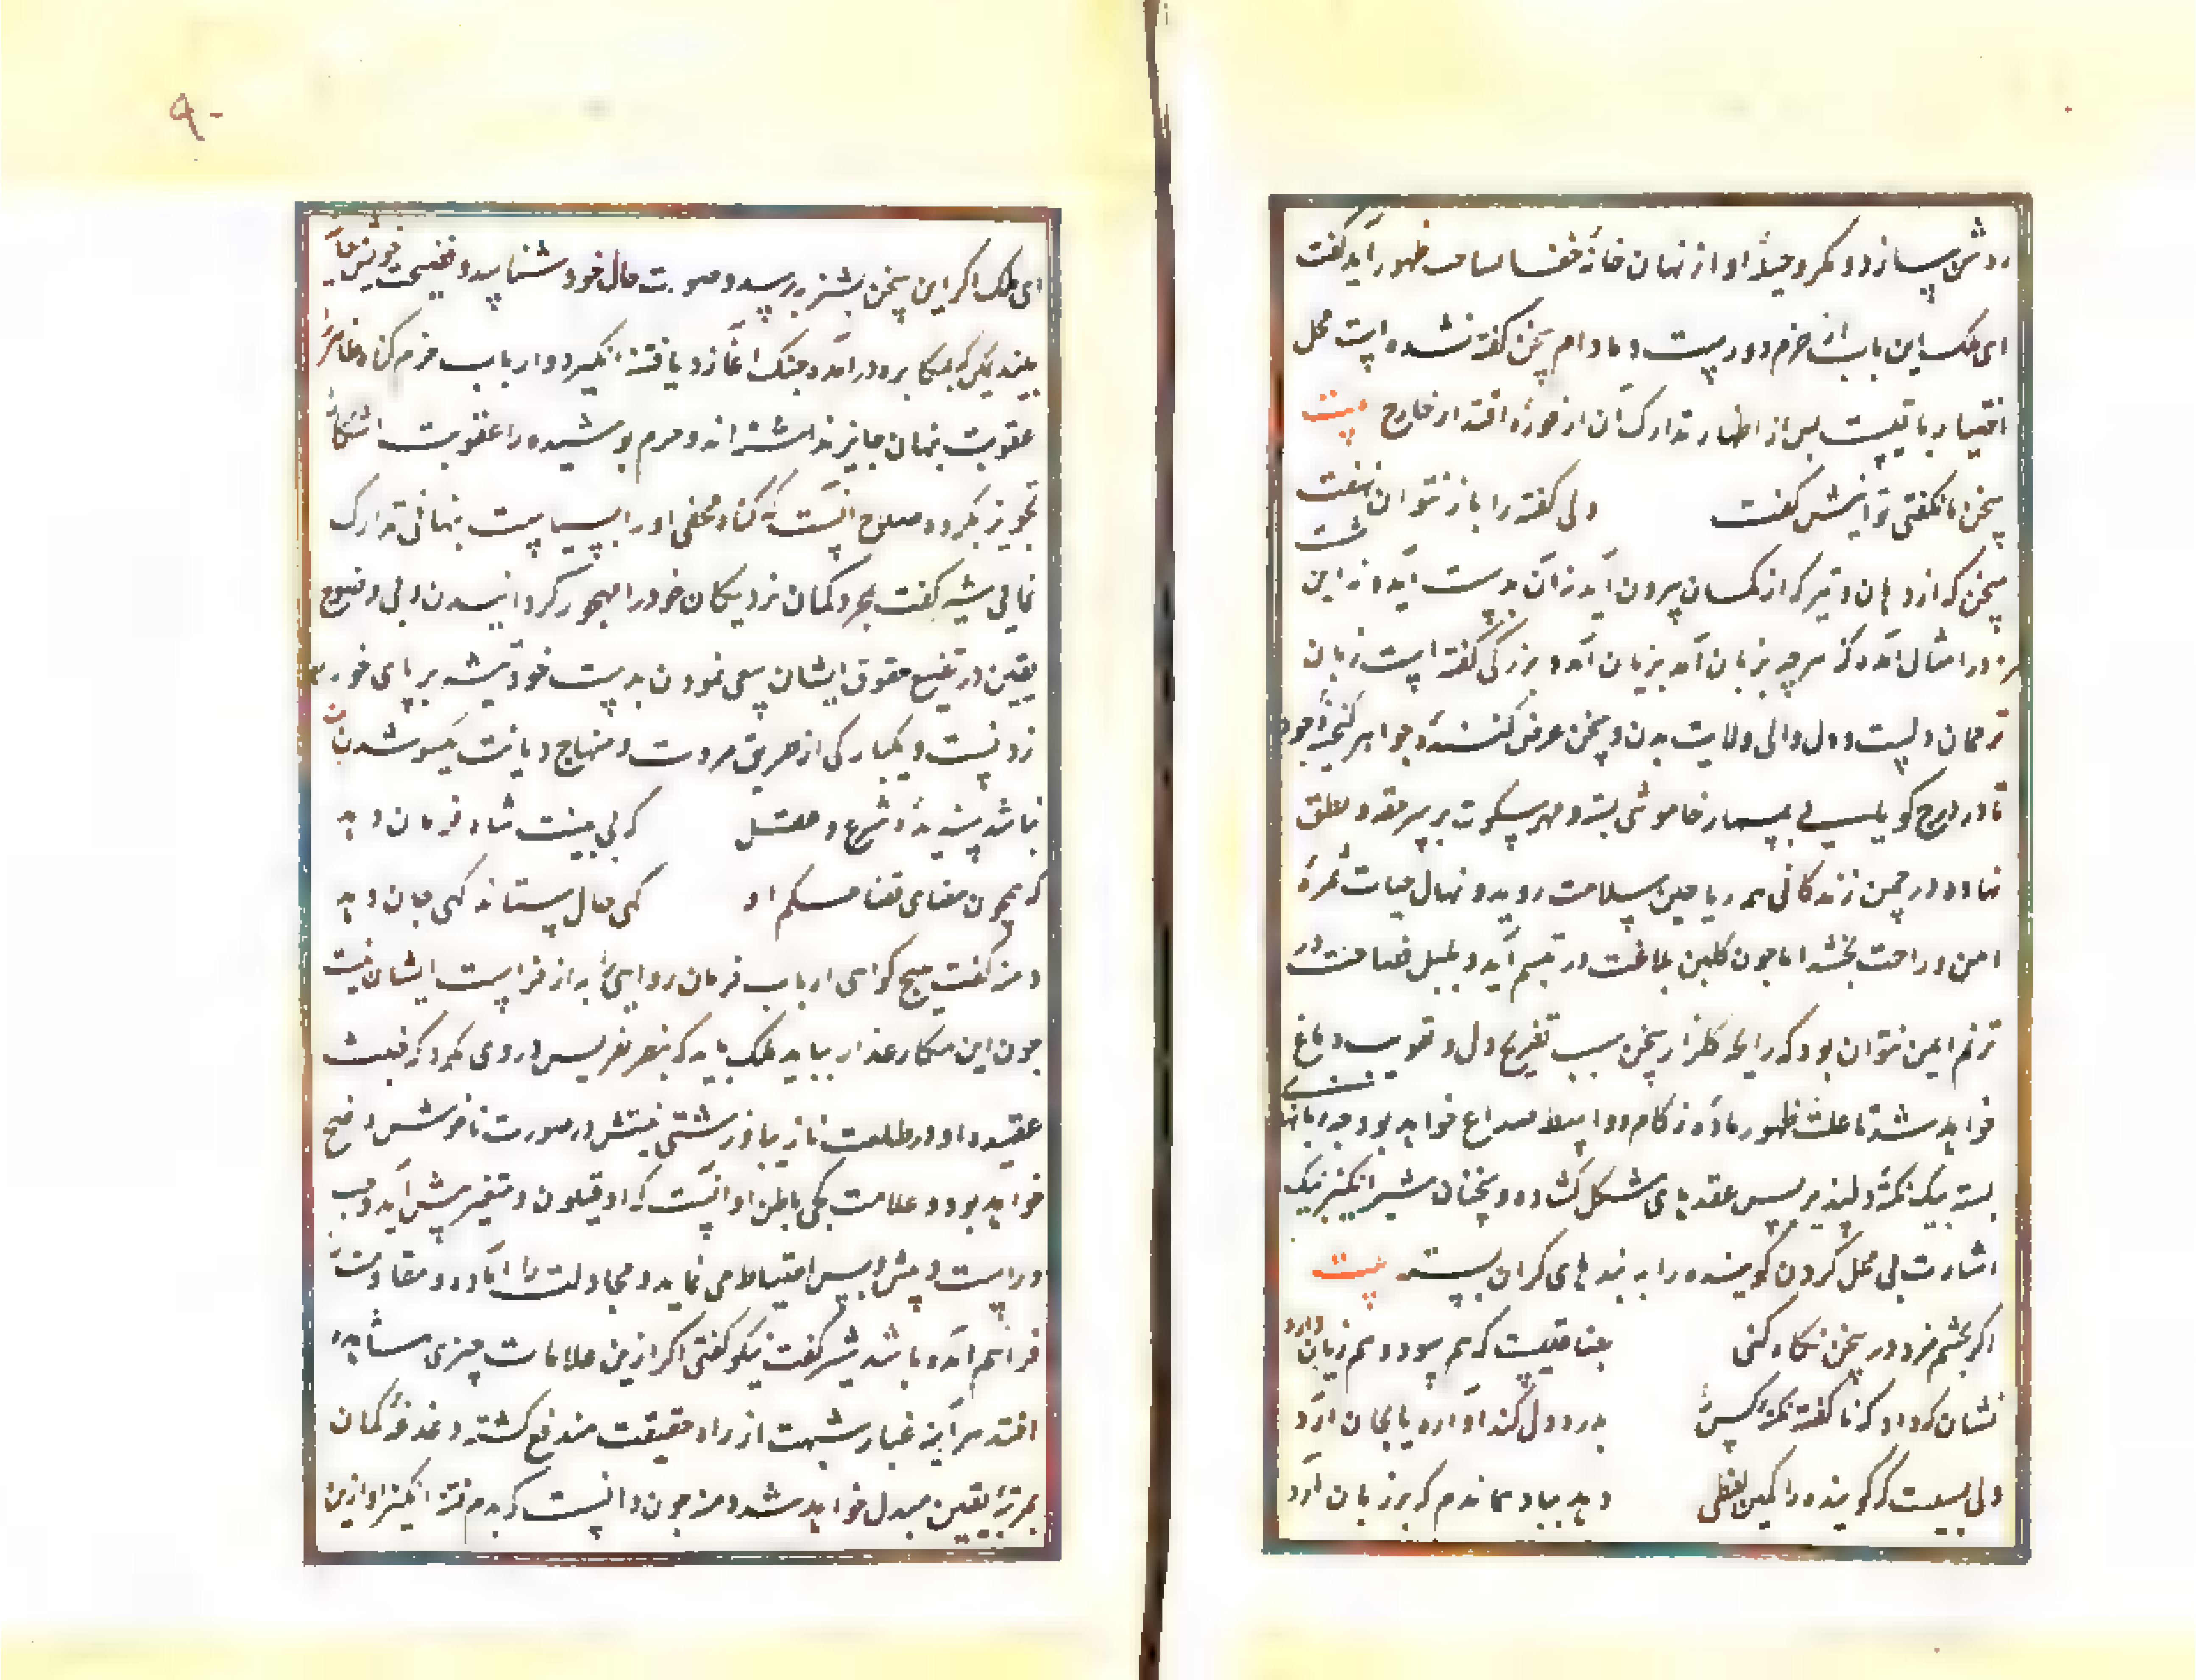 روشن سازد و مکر و حیلهٔ او از نهان خانهٔ خفا بساحت ظهور آید گفت
ای ملک این باب از حزم دورست و مادام سخن گفته نشده است محل
اختیار باقیست پس از اظهار تدارک آن از حوزهٔ اقتدار خارج بیت
سخن تا نگفتی توانیش گفت ولی گفته را باز نتوان نهفت
سخن که از دهان و تیر که از کمان بیرون آید نه آن بدست آید و نه این
در امثال آمده که هر چه بزبان آمد بزیان آمد و بزرگی گفته است زبان
ترجمان دلست و دل والی ولایت بدن و سخن عرض کنندهٔ جواهر گنجینهٔ وجود
تا در درج گویایی بمسمار خاموشی بسته و مهر سکوت بر سر حقه نطق
نهاده در چمن زندگانی همه ریاحین سلامت روید و نهال حیات ثمرهٔ
امن و راحت بخشد اما چون گلبن بلاغت در تبسم آید و بلبل فصاحت در
ترنم ایمن نتوان بود که رایحه گلزار سخن سبب تفریح دل و تقویت دماغ
خواهد شد تا علت ظهور ماده زکام و واسطه صداع خواهد بود چه زبانها
بسته بیک نکتهٔ دلپذیر بس عقدهای مشکل گشاده و سخنان شرانگیز بیک
اشارت بی محل گردن گوینده را به بندهای گران بسته بیت
اگر بچشم خرد در سخن نگاه کنی که هم سود و هم زیان دارد
نشان که داد که ناگفته نکته کسی را بدرد دل کند آواره یا بجان آرد
ولی بسیست که گوینده را کمین لفظی دهد بباد هماندم که بر زبان آرد
۹۰
ای ملک اگر این سخن بشنزبه رسد و صورت حال خود شناسد و فضیحت خویش معاینه
بیند یمکن که بمکابره درآمده جنگ آغازد یا فتنه انگیزد و ارباب حزم گناه ظاهر را
عقوبت پنهان جایز نداشته‌اند و جرم پوشیده را عقوبت آشکارا
تجویز نکرده صلاح آنست که گناه مخفی او را بسیاست پنهانی تدارک
نمایی شیر گفت بمجرد گمان نزدیکان خود را مهجور گردانیدن و بی وضوح
یقین در تضییع حقوق ایشان سعی نمودن بدست خود تیشه بر پای خود
زدنست و یکبارگی از طریق مروت و منهاج دیانت یکسو شدن
نباشد پسندیدهٔ شرع و عقل که بی بینت شاه فرمان دهد
که همچون قضای قضا حکم او گهی جان ستاند گهی جان دهد
دمنه گفت هیچ گواهی ارباب فرمان روایی را به از فراست ایشان نیست
چون این مکار غدار بیاید ملک باید که بنظر تفرس در وی نگرد که خبث
عقیده او در طلعت نازیبا و زشتی نیتش در صورت ناخوش واضح
خواهد بود و علامت کجی باطن او آنست که او متلون و متغیر پیش آید و چپ
و راست و پیش و پس احتیاط می نماید و مجادلت را آماده و مقاومت را
فراهم آمده باشد شیر گفت نیکو گفتی اگر ازین علامات چیزی مشاهده
افتد هر آینه غبار شبهت از راه حقیقت مندفع گشته و دغدغهٔ گمان
بمرتبهٔ یقین مبدل خواهد شد دمنه چون دانست که بدم فتنه انگیز او ازین